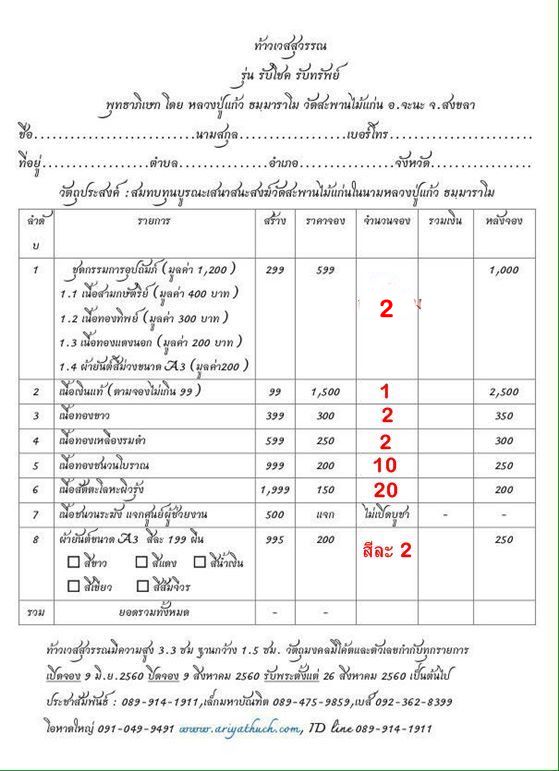 ท้าวเวสสุวรรณ
รุ่น รับโชค รับทรัพย์
พุทธาภิเษก โดย หลวงปู่แก้ว ธมฺมาราโม วัดสะพานไม้แก่น อ.จะนะ จ.สงขลา
ชื่อ...........................นามสกุล..................เบอร์โทร........................
ที่อยู่..................ตำบล...............อำเภอ................จังหวัด.................
วัตถุประสงค์ : สมทบทุนบูรณะเสนาสนะสงฆ์วัดสะพานไม้แก่นในนามหลวงปู่แก้ว ธมฺมาราโม
ลำดับ รายการ สร้าง ราคาจอง จำนวนจอง รวมเงิน หลังจอง
1 ชุดกรรมการอุปถัมภ์ (มูลค่า 1,200 ) 299 599 2 1,000
1.1 เนื้อสามกษัตริย์ (มูลค่า 400 บาท )
1.2 เนื้อทองทิพย์ (มูลค่า 300 บาท )
1.3 เนื้อทองแดงนอก (มูลค่า 200 บาท )
1.4 ผ้ายันต์สีม่วงขนาด A3 (มูลค่า200 )
2 เนื้อเงินแท้ (ตามจองไม่เกิน 99 ) 99 1,500 1 2,500
3 เนื้อทองขาว 399 300 2 350
4 เนื้อทองเหลืองรมดำ 599 250 2 300
5 เนื้อทองชนวนโบราณ 999 200 10 250
6 เนื้อสัตตะโลหะผิวรุ้ง 1,999 150 20 200
7 เนื้อชนวนระฆัง แจกศูนย์ผู้ช่วยงาน 500 แจก ไม่เปิดบูชา - -
8 ผ้ายันต์ขนาด A3 สีละ 199 ผืน 995 200 สีละ 2 250
สีขาว สีแดง สีน้ำเงิน
สีเขียว สีสีมจิวร
รวม ยอดรวมทั้งหมด - -
ท้าวเวสสุวรรณมีความสูง 3.3 ซม ฐานกว้าง 1.5 ซม. วัตถุมงคลมีโค้ดและตัวเลขกำกับทุกรายการ
เปิดจอง 9 มิ.ย.2560 ปิดจอง 9 สิงหาคม 2560 รับพระตั้งแต่ 26 สิงหาคม 2560 เป็นต้นไป
ประชาสัมพันธ์ : 089-914-1911,เล็กมหาบัณฑิต 089-475-9859,เบส์ 092-362-8399
โอหาดใหญ่ 091-049-9491 www.ariyathuch.com, ID line 089-914-1911